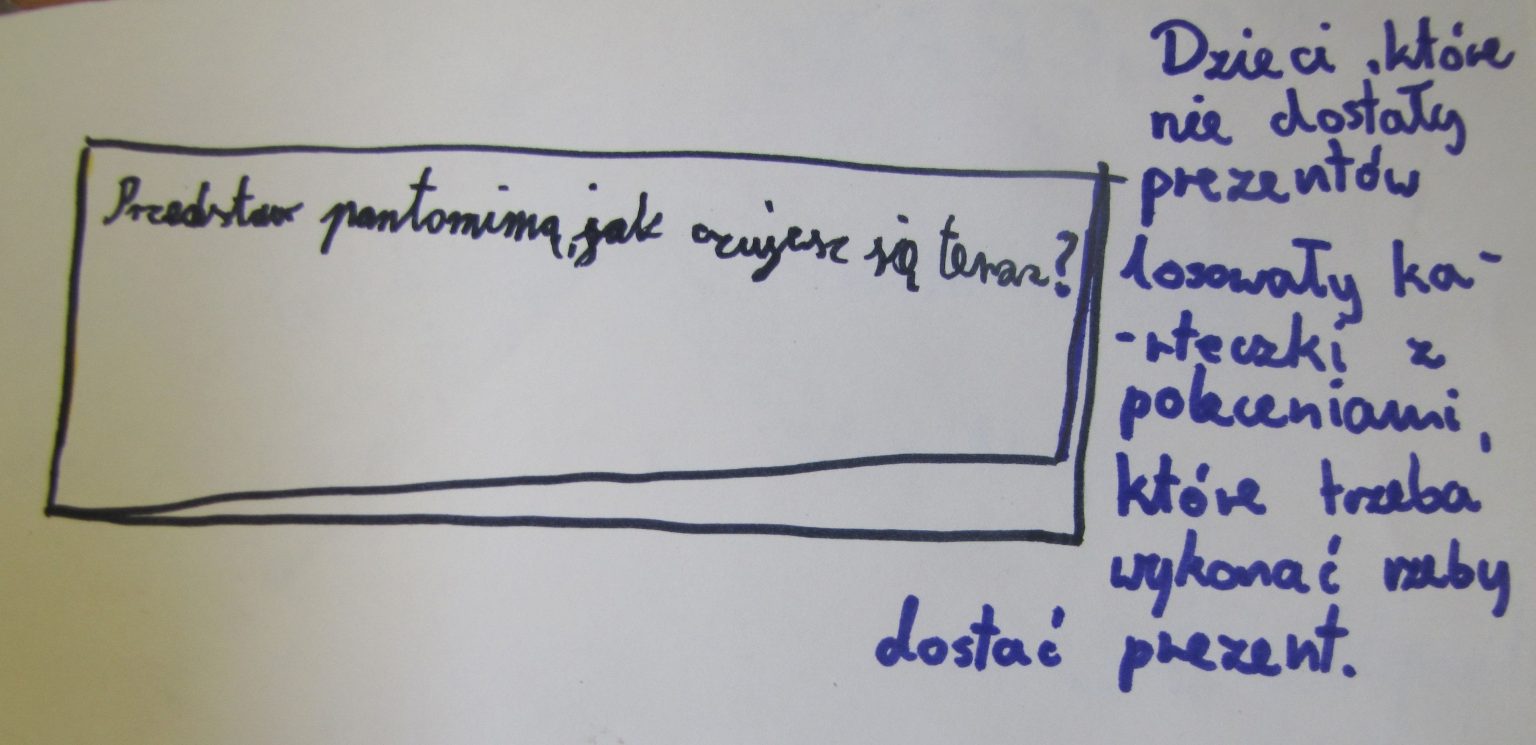 Przedstaw pantomimą, jak czujesz się teraz?
Dzieci, które
nie dostały
prezentów
losowały ka-
-rteczki z
poleceniami,
które trzeba
wykonać rzeby
dostać prezent.